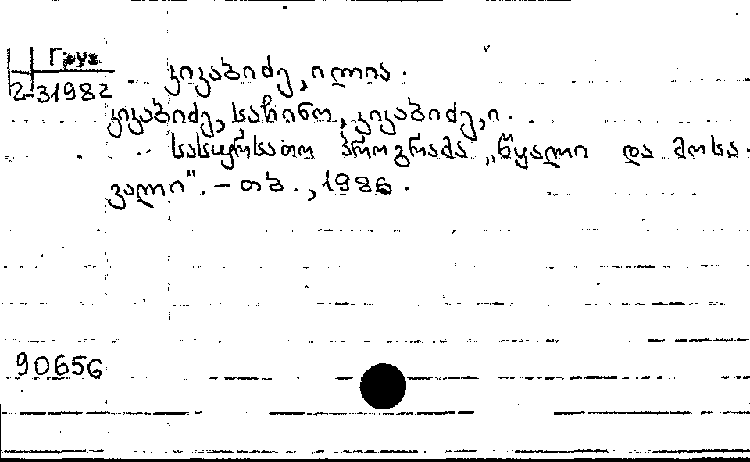 Груз
2-31982
კიკაბიძე, ილია.
კიკაბიძე, საჩინო, კიკაბიძე, ი.
სასცენო პროგრამა „წყალი და მოსა-
ვალი". – თბ., 1986.
90656